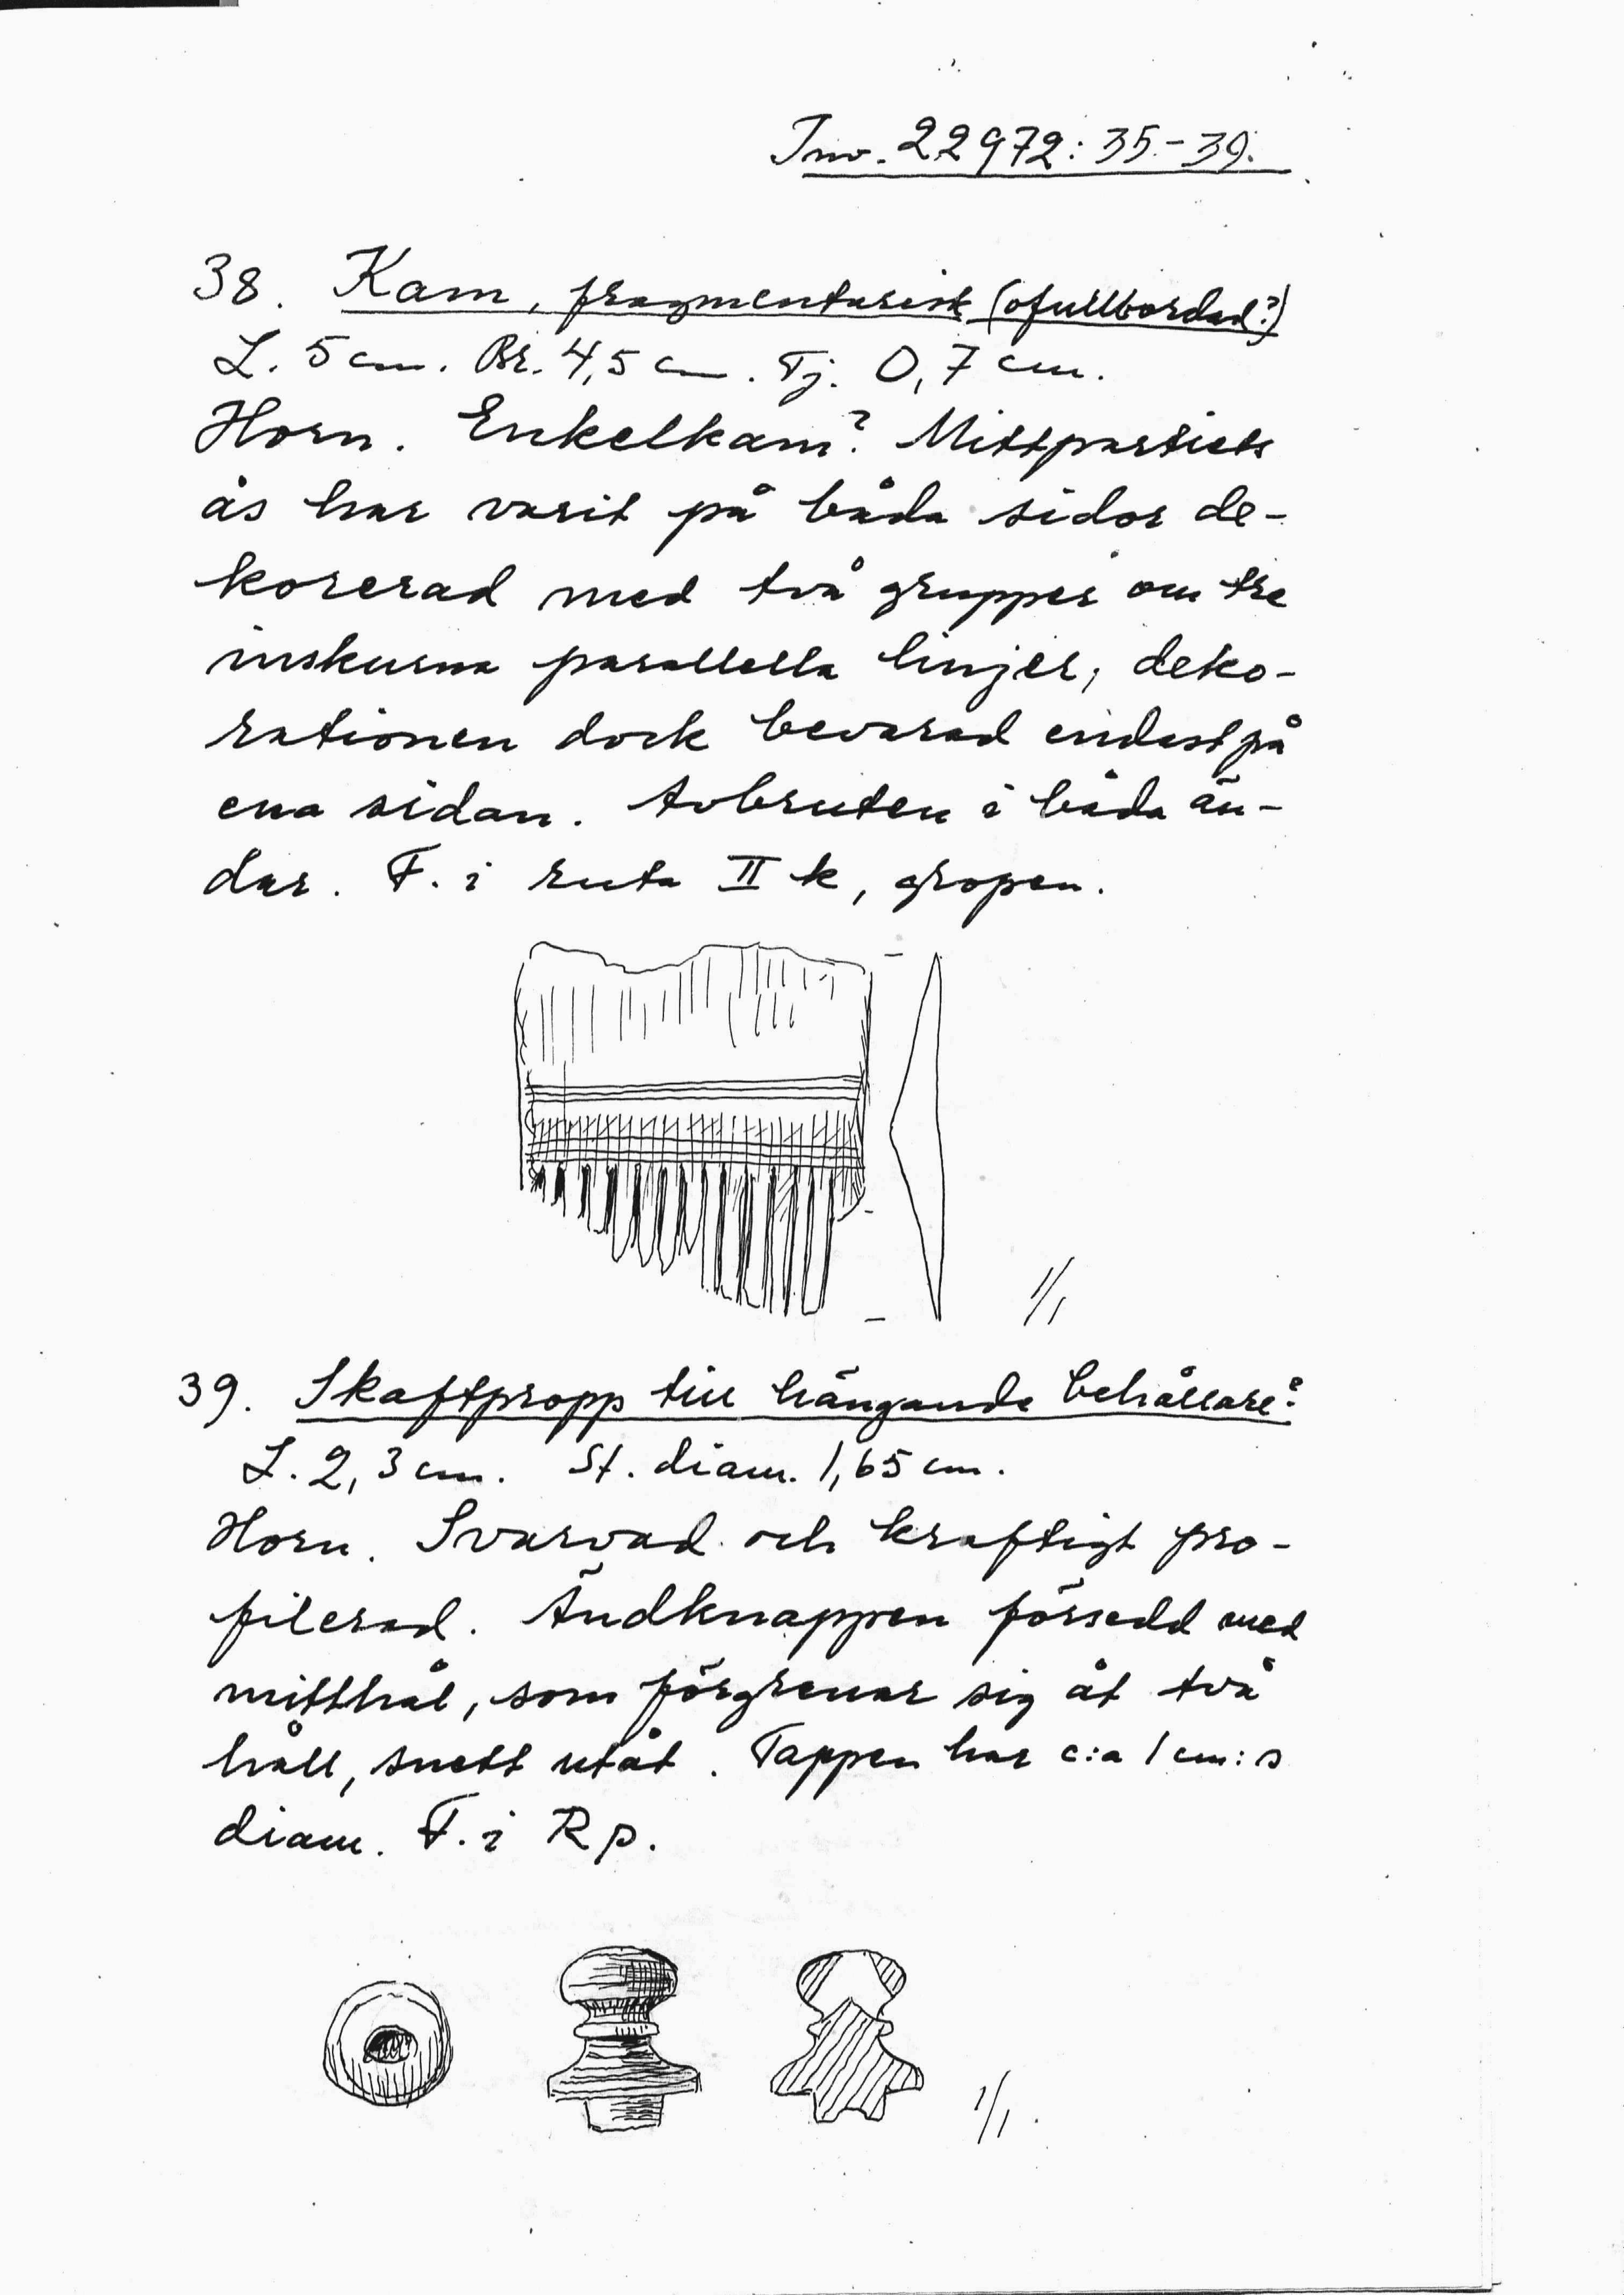 Inv. 22972: 35-39.
38. Kam, fragmentarisk (ofullbordad?)
L. 5 cm. Br. 4,5 cm. Tj. 0,7 cm.
Horn. Enkelkam? Mittpartiets
ås har varit på båda sidor de-
korerad med två grupper om tre
inskurna parallella linjer, deko-
rationen dock bevarad endast på
ena sidan. Avbruten i båda än-
dar. F. i ruta II k, gropen.
1/1
39. Skaftpropp till hängande behållare?
L. 2,3 cm. St. diam. 1,65 cm.
Horn. Svarvad och kraftigt pro-
filerad. Ändknappen försedd med
mitthål, som förgrenar sig åt två
håll, snett utåt. Tappen har c:a 1 cm:s
diam. F. i Rp.
1/1.